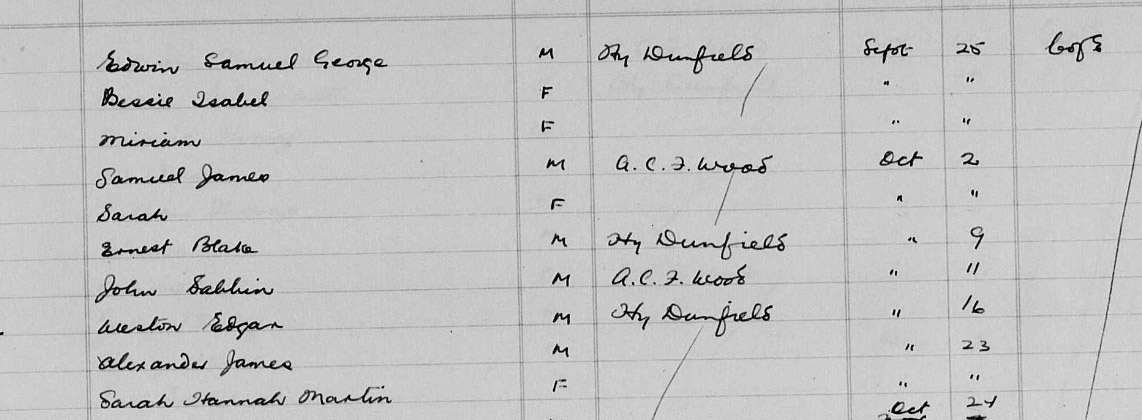 Edwin Samuel George M Hy Dunfield Sept 25 CofE
Bessie Isabel F " "
Miriam F " "
Samuel James M A.C.F. Wood Oct 2
Sarah F " "
Ernest Blake M Hy Dunfield " 9
John M A.C.F. Wood " 11
Weston Edgar M Hy Dunfield " 16
Alexander James M " 23
Sarah Hannah Martin F " "
Oct 24